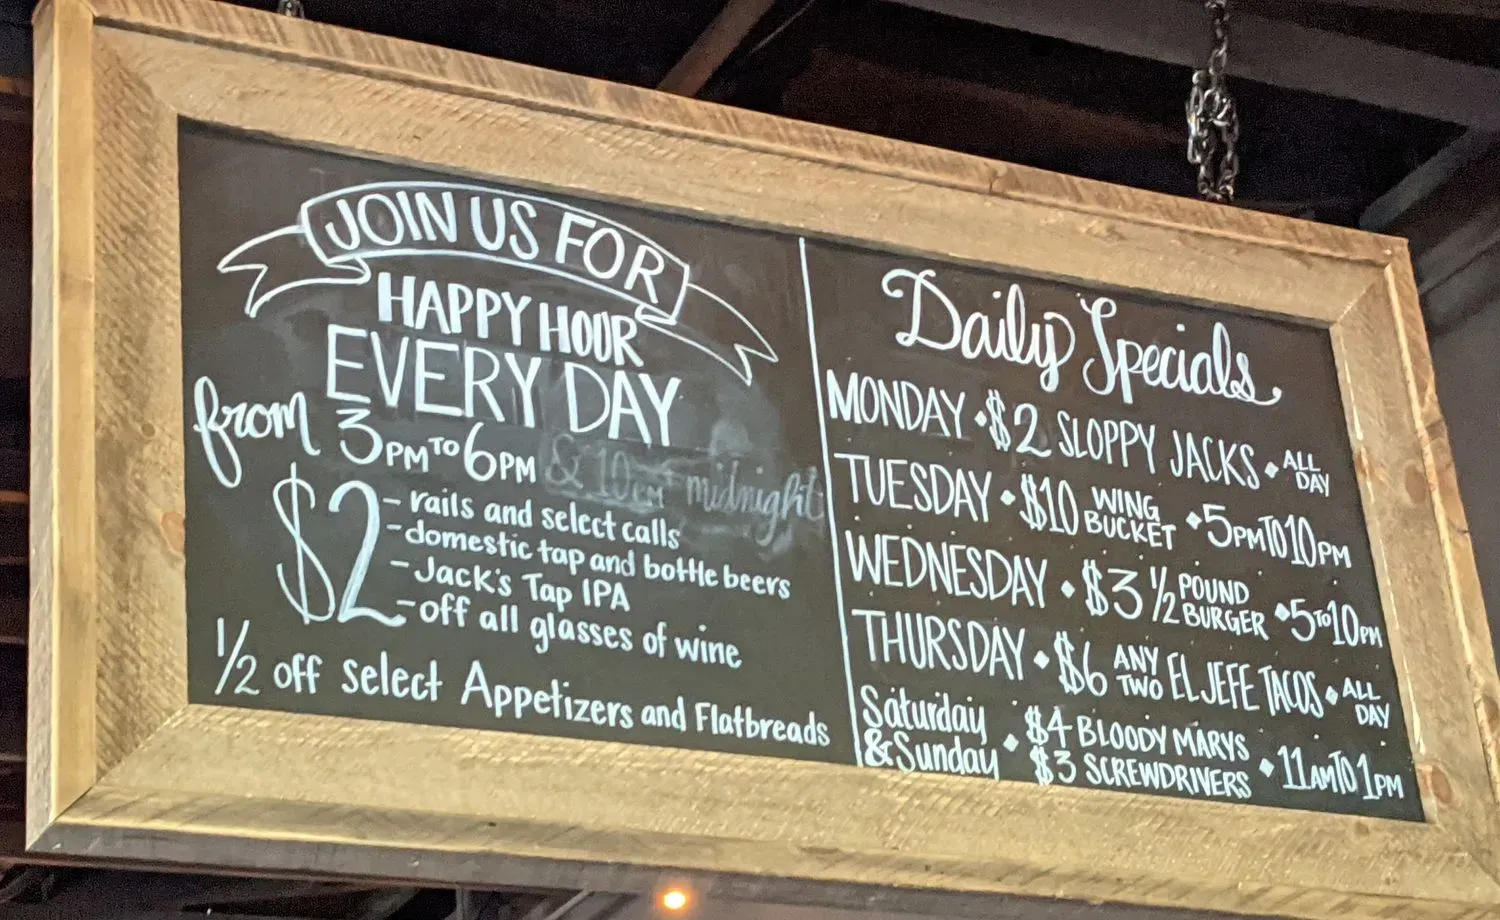 JOIN US FOR
HAPPY HOUR
EVERY DAY
from 3PM TO 6PM & 10PM midnight
$2 - rails and select calls
- domestic tap and bottle beers
- Jack's Tap IPA
- off all glasses of wine
1/2 off select Appetizers and Flatbreads
Daily Specials
MONDAY • $2 SLOPPY JACKS • ALL DAY
TUESDAY • $10 WING BUCKET • 5PM TO 10PM
WEDNESDAY • $3 1/2 POUND BURGER • 5 TO 10PM
THURSDAY • $6 ANY TWO EL JEFE TACOS • ALL DAY
Saturday & Sunday • $4 BLOODY MARYS
$3 SCREWDRIVERS • 11AM TO 1PM